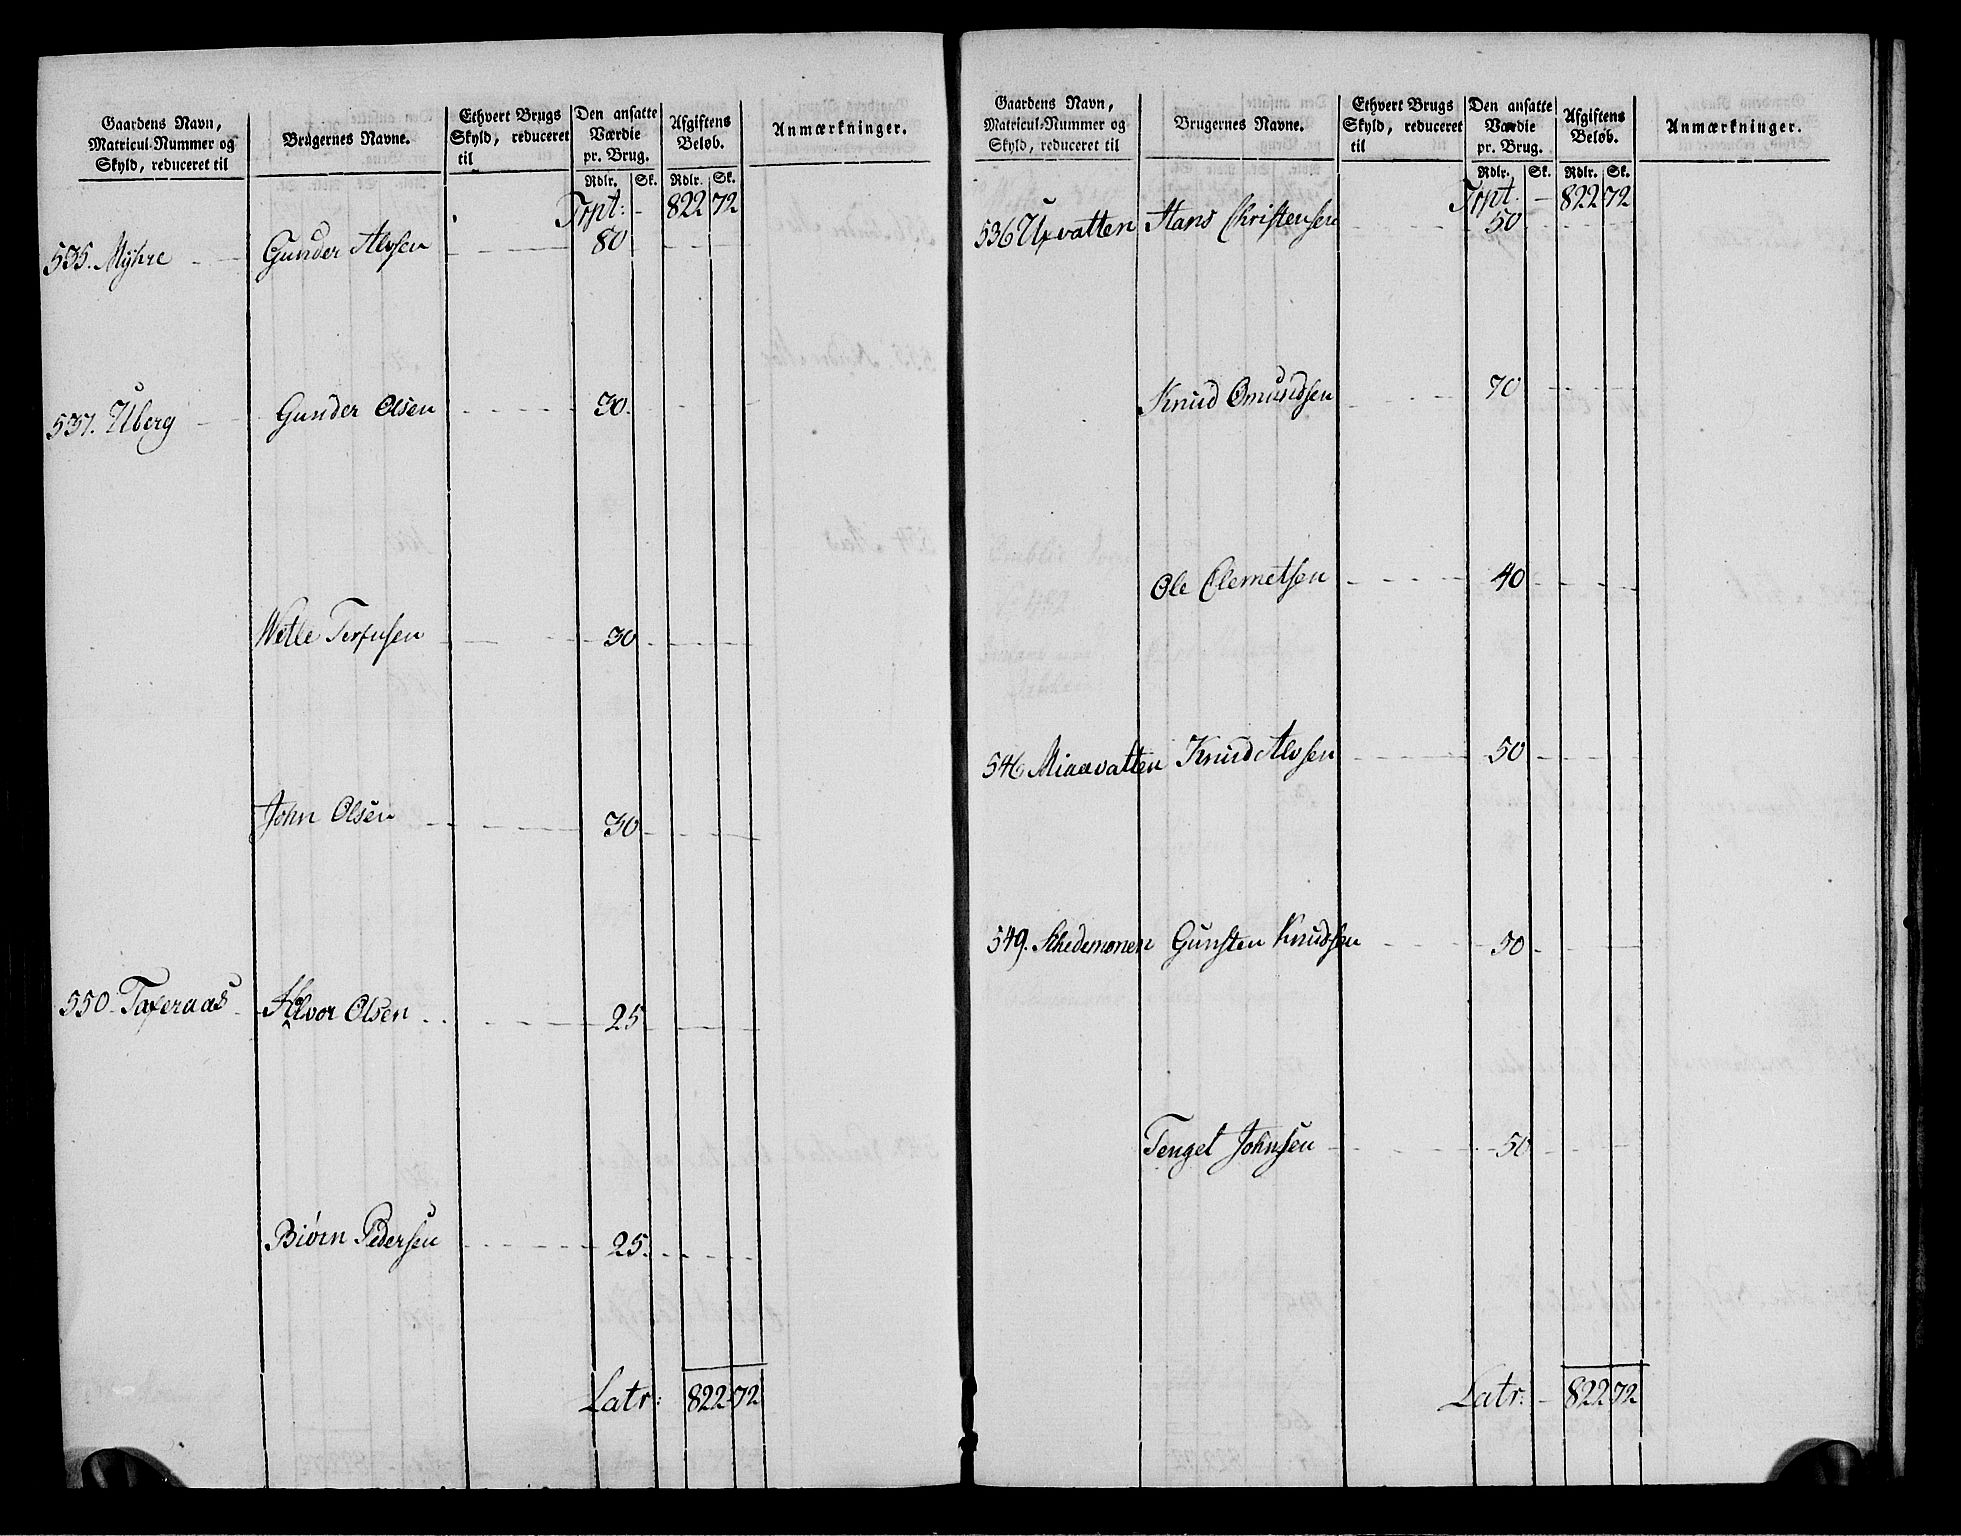 Gaardens Navn, Matricul-Nummer og Skyld, reduceret til
Brugernes Navne.
Ethvert Brugs Skyld, reduceret til
Den ansatte Værdie pr. Brug.
Afgiftens Beløb.
Anmærkninger.
Rdlr. Sk. Rdlr. Sk.
Trpt: - 822 72
535. Myhre Gunder Alvsen 80
537. Uberg Gunder Olsen 30.
Wetle Terjusen 30
John Olsen 30
550. Taxeraas Halvor Olsen 25
Biörn Pedersen 25.
Latr: 822 72
Gaardens Navn, Matricul-Nummer og Skyld, reduceret til
Brugernes Navne.
Ethvert Brugs Skyld, reduceret til
Den ansatte Værdie pr. Brug.
Afgiftens Beløb.
Anmærkninger.
Rdlr. Sk. Rdlr. Sk.
Trpt. - 822 72
536 Uxvatten Hans Christensen 50
Knud Omundsen 70
Ole Clemetsen 40
546 Miaavatten Knud Alvsen 50
549. Schedemonen Gunsten Knudssen 50
Tenget Johnsen 50
Latr: - 822 72